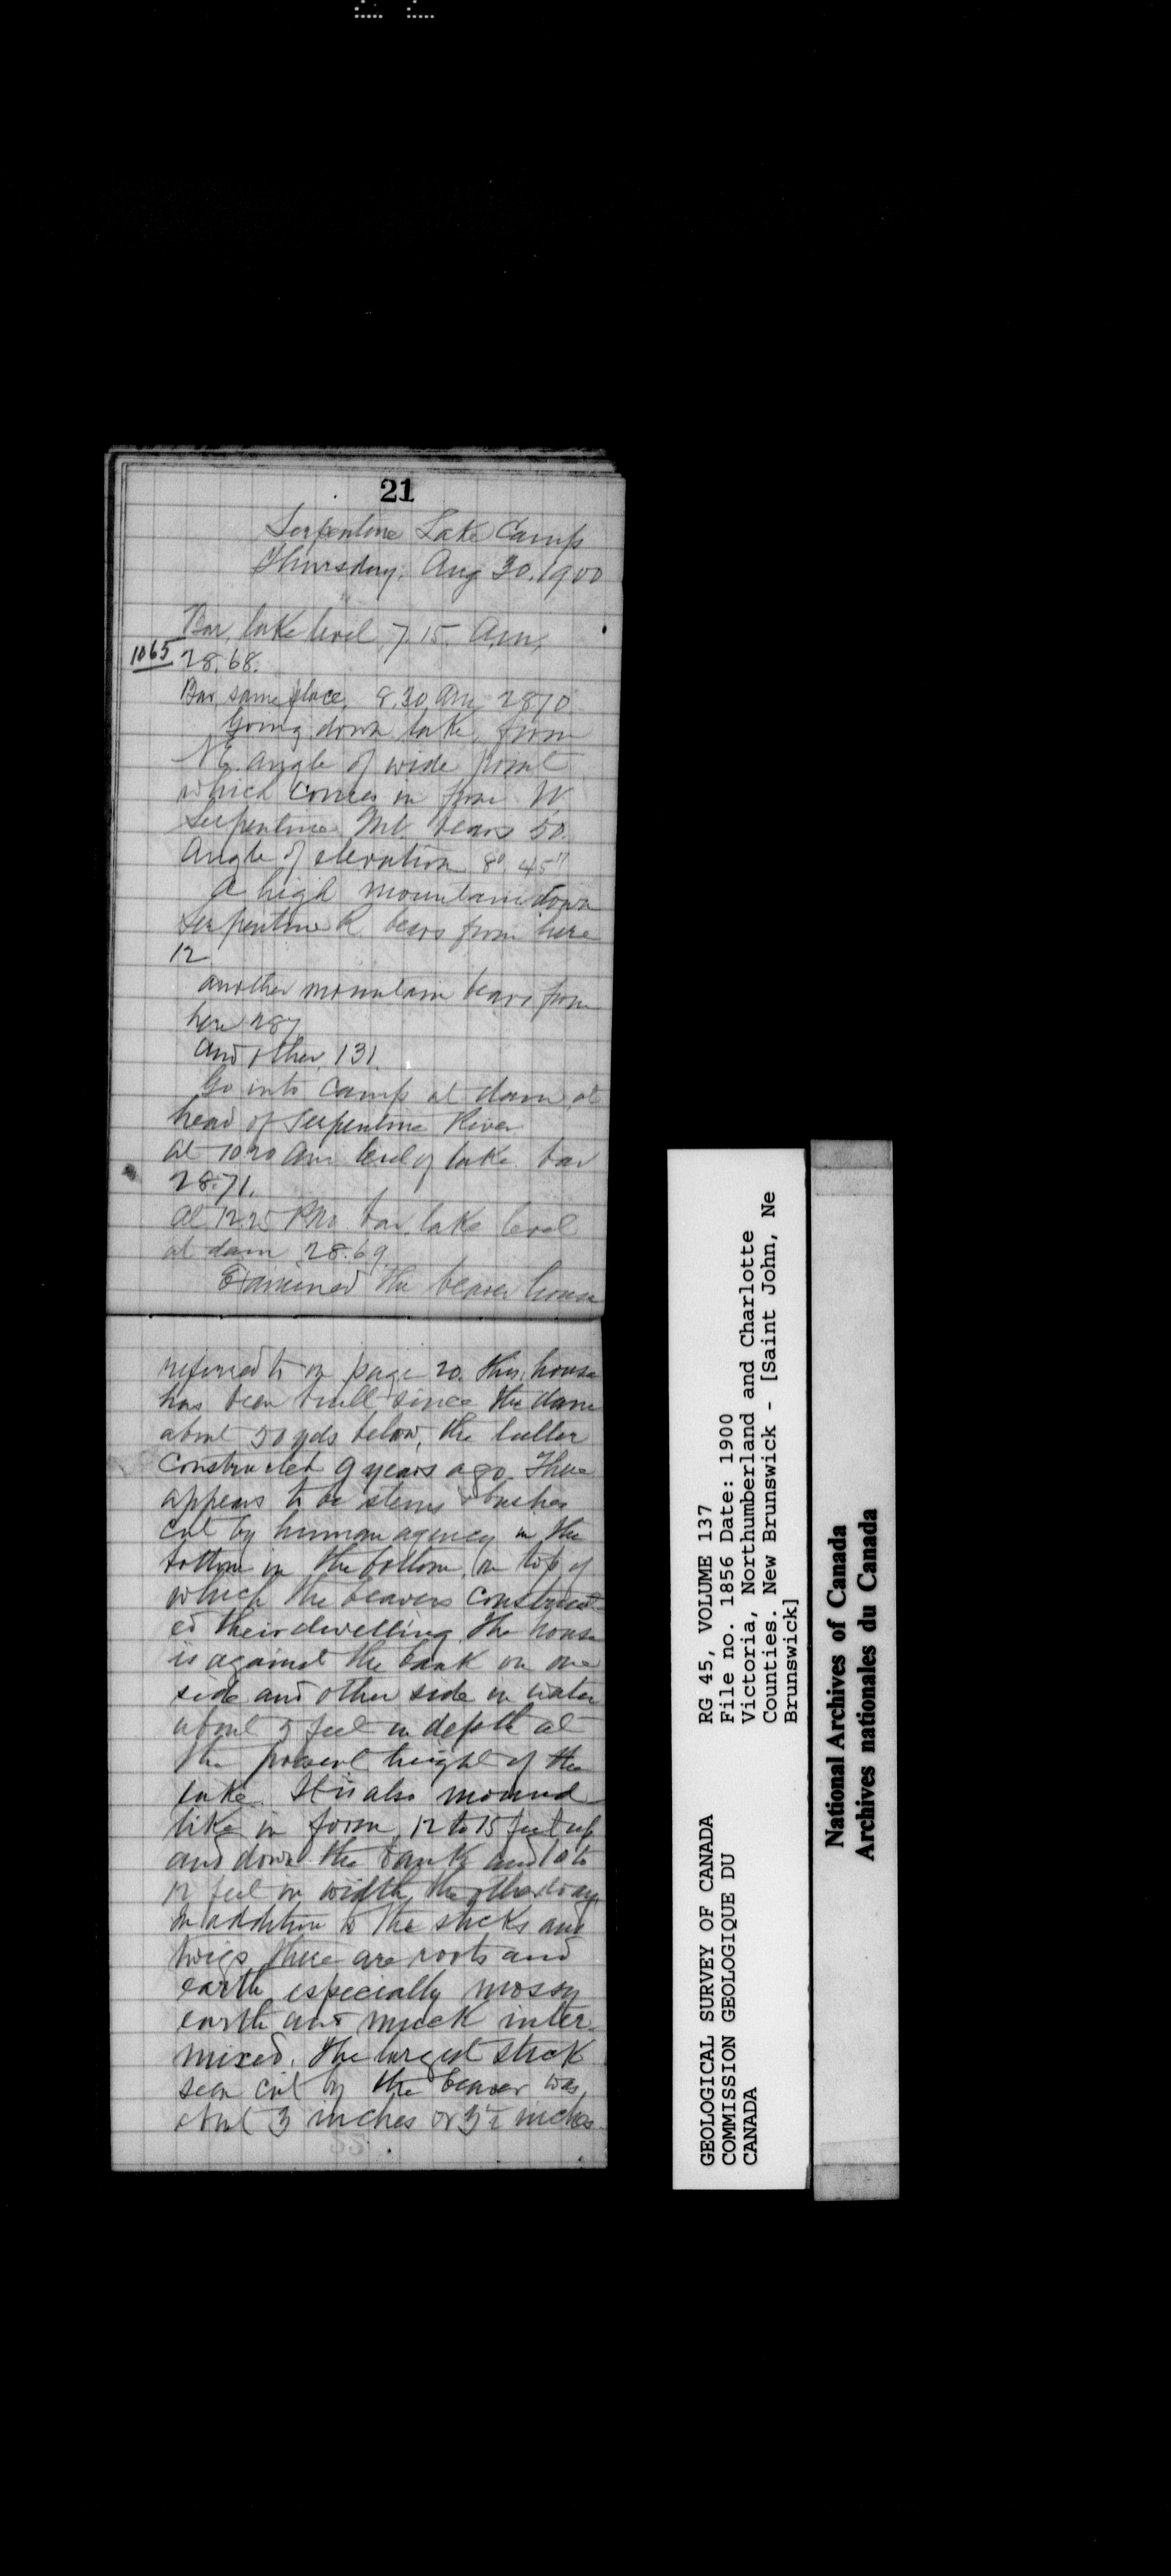 21
Serpentine Lake Camp
Thursday, Aug 30, 1900
Bar, lake level 7.15 A.m,
1065
28.68.
Bar, same place, 8.30 Am 28.70
Going down lake, from
N.E. angle of wide point
which comes in from W.
Serpentine Mt. bears 50.
Angle of elevation 8° 45"
A high mountain down
Serpentine R. bears from here
12
another mountain bears from
here 287
another, 131.
Go into camp at dam, at
head of Serpentine River
At 10.20 am level of lake bar
28.71.
At 12.25 PM bar, lake level
at dam 28.69
Examined the beaver house
referred to on page 20. This house
has been built since the dam
about 50 yds below, the latter
constructed 9 years ago. There
appears to be stems & bushes
cut by human agency in the
bottom in the bottom, on top of
which the beavers construct-
ed their dwelling. The house
is against the bank on one
side and other side in water
about 5 feet in depth at
the present height of the
lake. It is also mound
like in form, 12 to 15 feet up
and down the bank and 10 to
12 feet in width the other way
In addition to the sticks and
twigs there are roots and
earth, especially mossy
earth and muck inter-
mixed. The largest stick
seen cut by the beaver was
about 3 inches or 3½ inches
GEOLOGICAL SURVEY OF CANADA
COMMISSION GEOLOGIQUE DU
CANADA
RG 45, VOLUME 137
File no. 1856 Date: 1900
Victoria, Northumberland and Charlotte
Counties. New Brunswick - [Saint John, Ne
Brunswick]
National Archives of Canada
Archives nationales du Canada